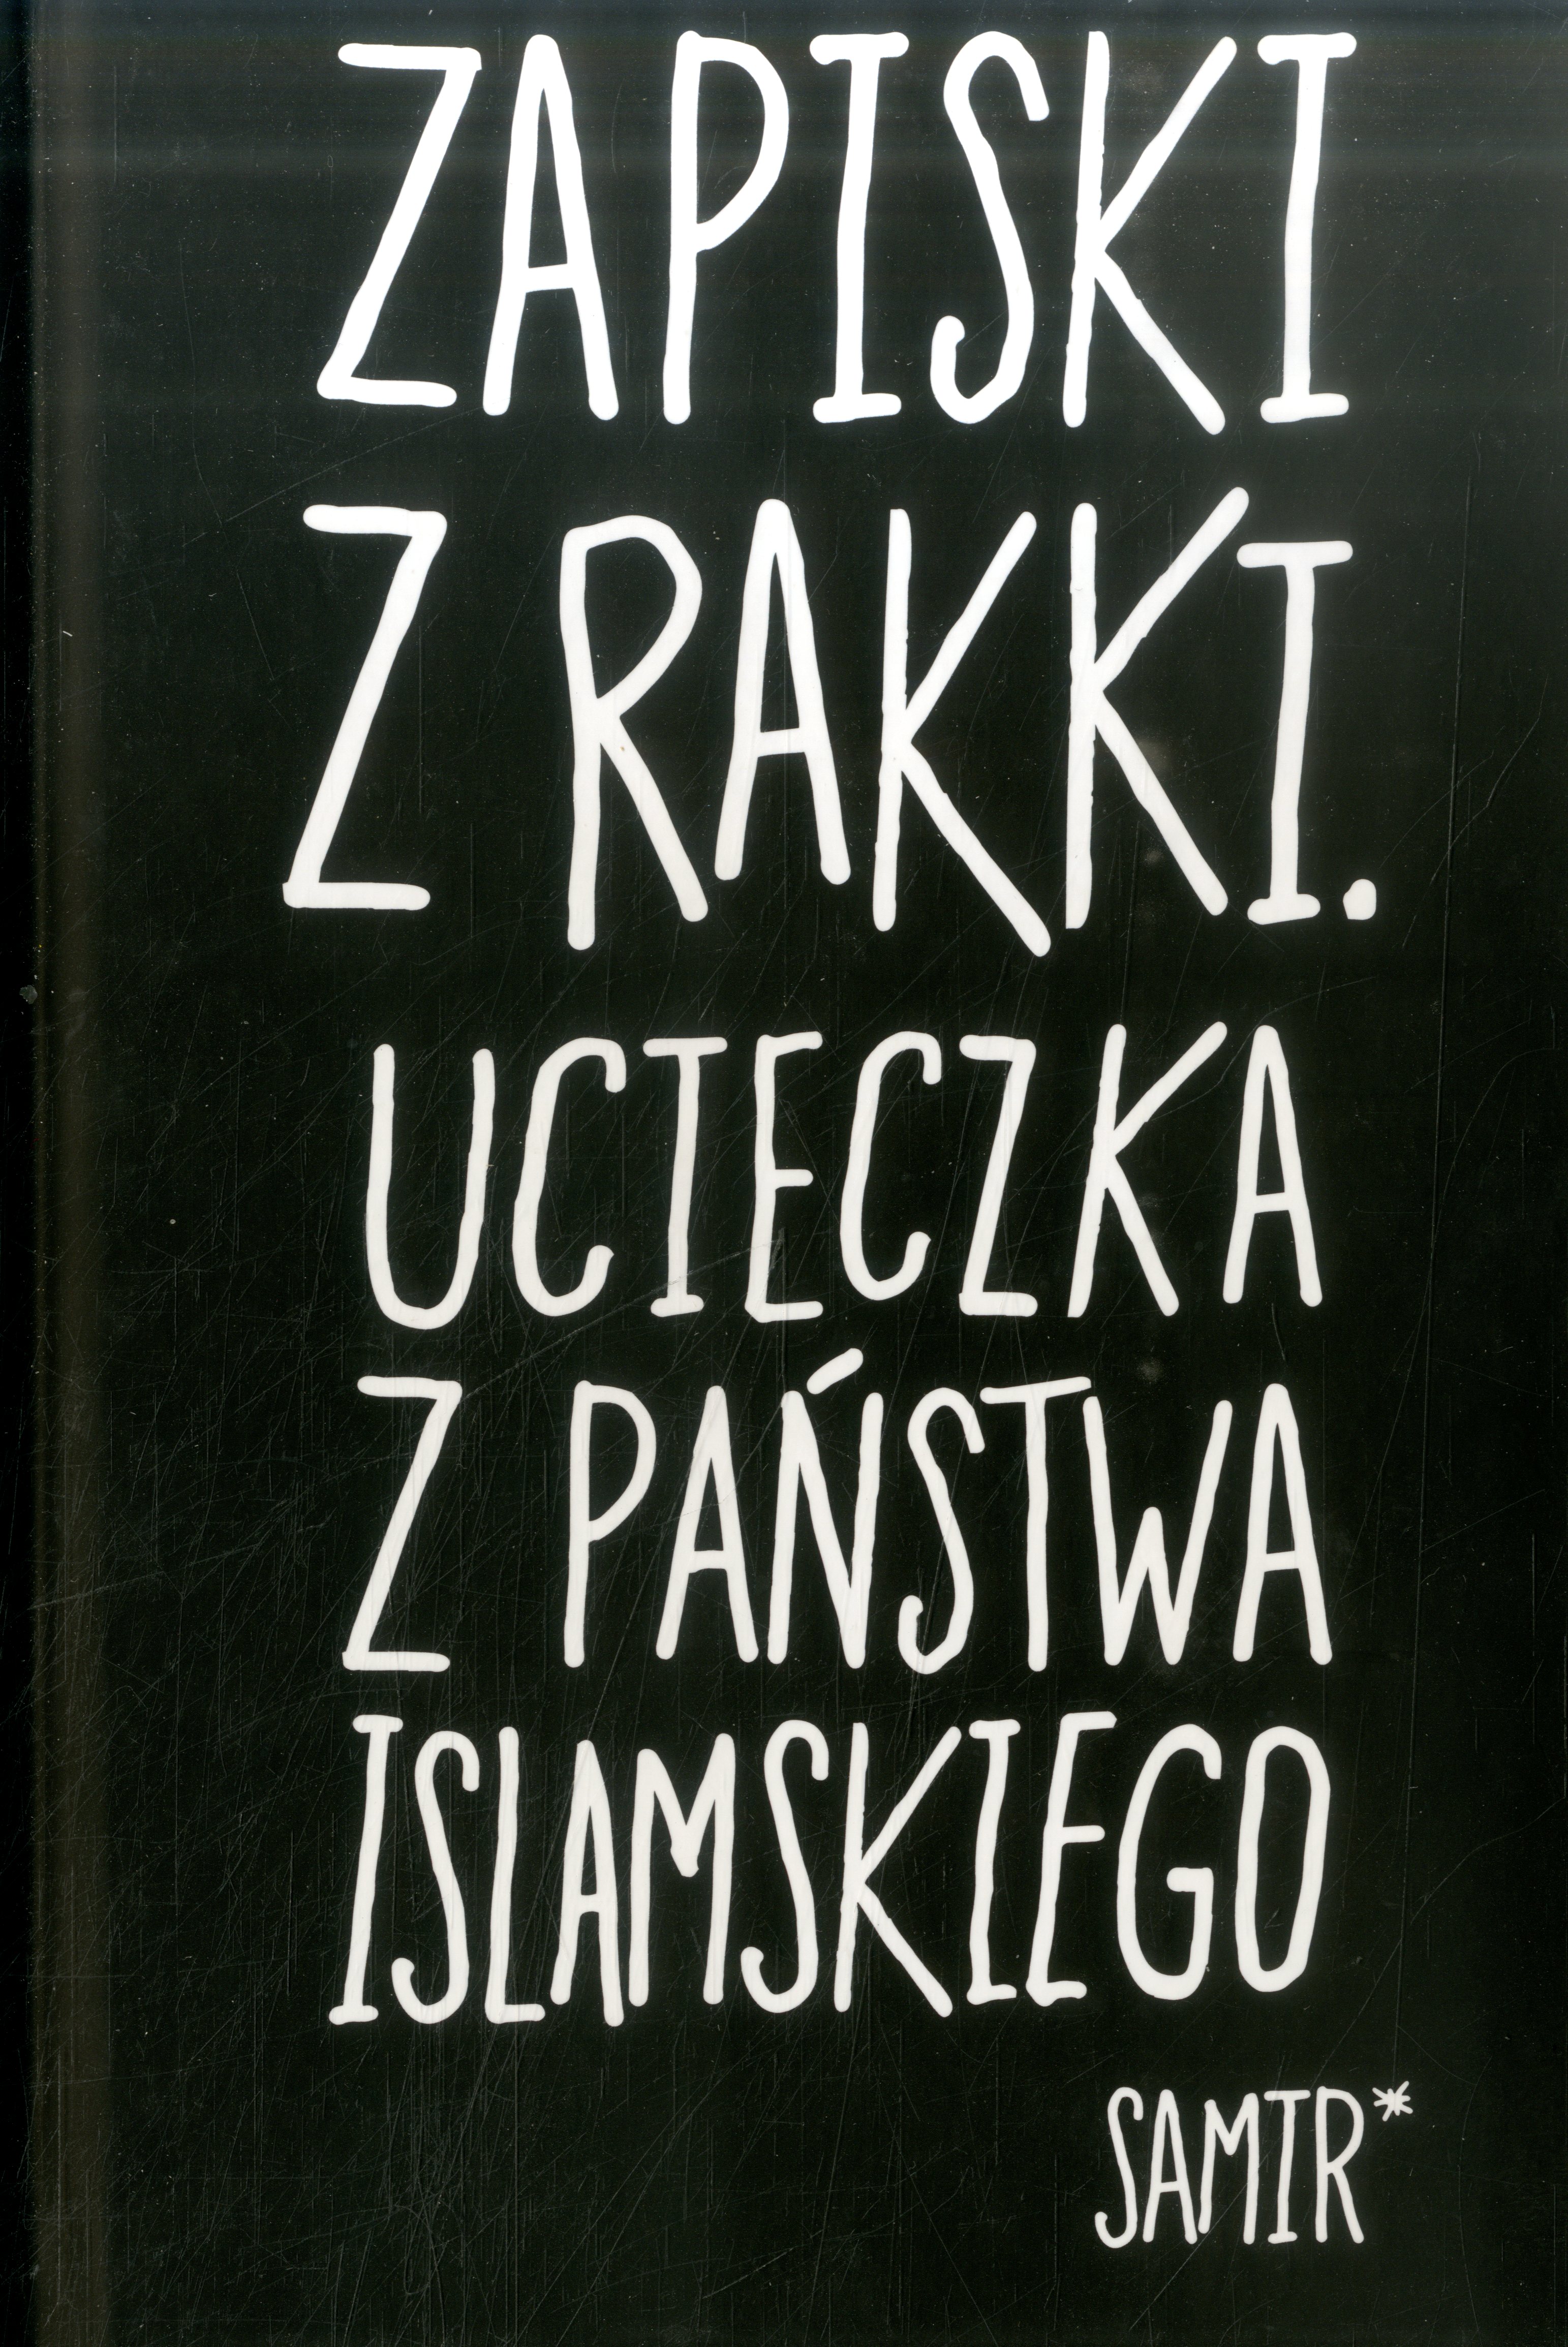 ZAPISKI
Z RAKKI.
UCIECZKA
Z PAŃSTWA
ISLAMSKIEGO
SAMIR*